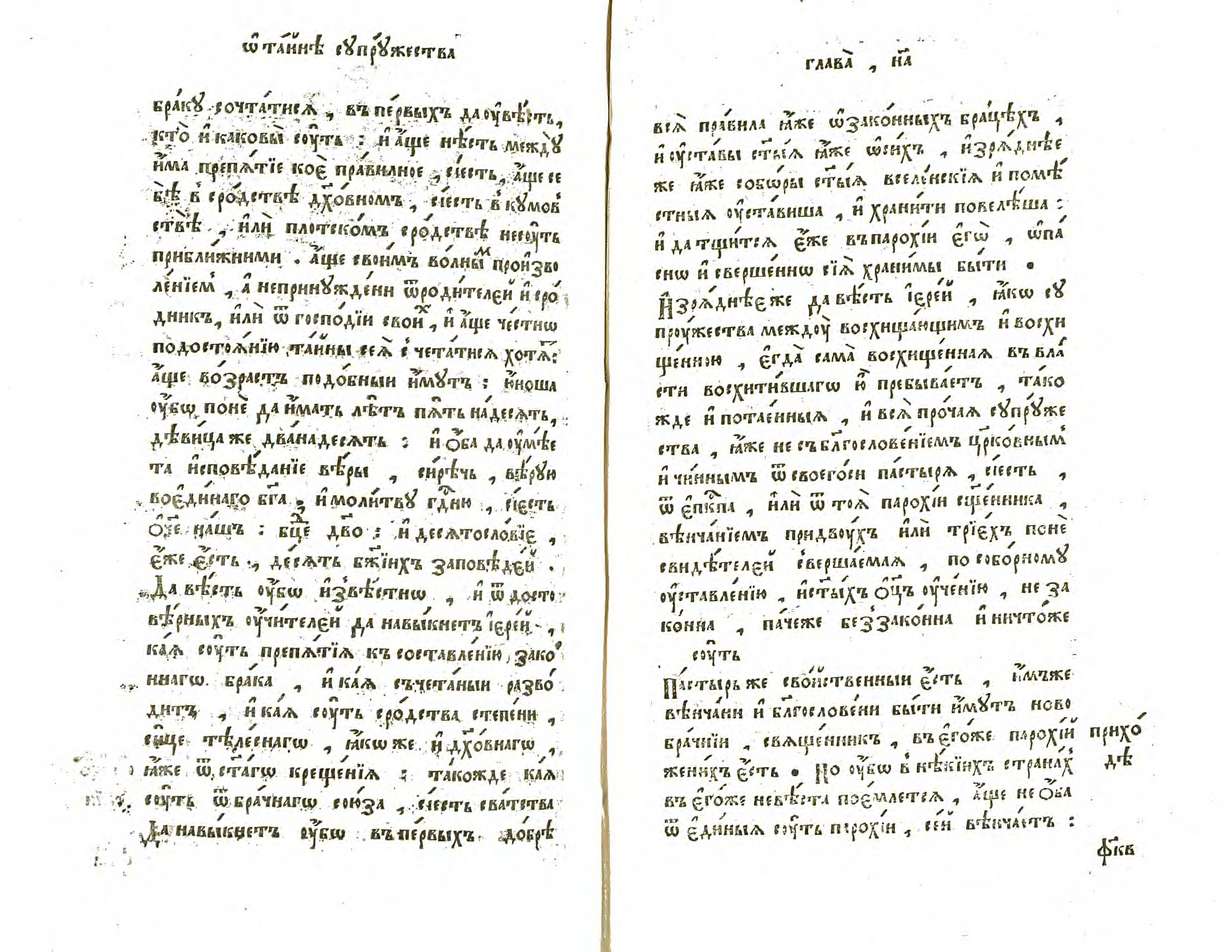 ѡ҆ та́йнѣ сꙋпрꙋ́жества
бра́кꙋ сочта́тисѧ , въ пе́рвыхъ да оу҆вѣ́сть,
кто̀ и҆ каковы̀ сꙋ́ть : и҆ а҆́ще нѣ́сть междꙋ̀
и҆́ма препѧ́тїе коѐ пра́вилное , сі́есть, а҆́ще се
бѣ̀ в̾ сро́дствѣ дх҃о́вномъ , сі́есть в̾ кꙋмов̾
ствѣ̀ , и҆лѝ пло́тскомъ сро́дствѣ несꙋ́ть
прибли́жними . а҆́ще свои́мъ во́лныⷨ произво
ле́нїем̾ , а҆ непринꙋжде́ни ѿ роди́телей и҆ сро́
дникъ, и҆лѝ ѿ господі́и свои́ⷯ , и҆ а҆́ще че́стнѡ
по досто́ѧнїю та́йны сеѧ̀ с̾четатисѧ хотѧ́тъ:
а҆́ще во́зрастъ подо́бныи и҆́мꙋтъ : ю҆́ноша
оу҆́бѡ понѐ да и҆́мать лѣ́тъ пѧ́ть на́десѧть,
дѣви́ца же два́надесѧть : и҆ ѻ҆́ба да оу҆мѣ́е
та и҆сповѣ́данїе вѣ́ры , си́рѣчь , вѣ́рꙋю
во є҆ди́наго бг҃а , и҆ моли́твꙋ гд҇ню , сі́есть
ѻ҆́ч҃е на́шъ : бц҃е дв҃о : и҆ десѧтосло́вїе ,
є҆́же є҆́сть , де́сѧть бж҃їихъ за́повѣдей .
Да вѣ́сть оу҆́бѡ и҆звѣ́стнѡ , и҆ ѿ досто
вѣ́рныхъ оу҆чи́телей да навы́кнетъ і҆ере́й ,
ка́ѧ сꙋ́ть препѧ́тїѧ къ составле́нїю зако́
ннагѡ бра́ка , и҆ ка́ѧ съчета́ныи разво́
дитъ , и҆ ка́ѧ сꙋ́ть сро́дства степе́ни ,
си́це тѣле́снагѡ , ꙗ҆́коже и҆ дх҃о́внагѡ ,
ꙗ҆́же ѿ ст҃а́гѡ креще́нїѧ : тако́жде ка́ѧ
сꙋ́ть ѿ бра́чнагѡ сою́за , сі́есть сва́тства
Да навы́кнетъ оу҆́бѡ въ пе́рвыхъ до́брѣ
глава̀ , н҃а
всѧ̀ пра́вила ꙗ҆́же ѡ҆ зако́нныхъ бра́цѣхъ ,
и҆ оу҆ста́вы ст҃ы́ѧ ꙗ҆́же ѡ҆ си́хъ , и҆зрѧ́днѣе
же ꙗ҆́же собѡ́ры ст҃ы́ѧ вселе́нскїѧ и҆ помѣ́
стныѧ оу҆ста́виша , и҆ храни́ти повелѣ́ша :
и҆ да тщи́тсѧ є҆́же въ паро́хїи є҆гѡ̀ , ѡ҆па́
снѡ и҆ сверше́ннѡ сїѧ̀ храни́мы бы́ти .
И҆зрѧ́днѣе же да вѣ́сть і҆ере́й , ꙗ҆́кѡ сꙋ
прꙋ́жества междоу̀ восхища́ющимъ и҆ восхи
ще́нною , є҆гда̀ сама̀ восхище́нная въ вла́
сти восхити́вшагѡ ю҆̀ пребыва́етъ , та́ко
жде и҆ потае́нныѧ , и҆ всѧ̀ про́чаѧ сꙋпрꙋ́же
ства , ꙗ҆́же не съ бл҃гослове́нїемъ цр҃ко́вным̾
и҆ чи́ннымъ ѿ своего́си па́стырѧ , сі́есть ,
ѿ є҆пк҇па , и҆лѝ ѿ тоѧ̀ паро́хїи сщ҃е́нника ,
вѣнча́нїемъ при двоу́хъ и҆лѝ трїе́хъ понѐ
свидѣ́телей с̾верша́емаѧ , по собо́рномꙋ
оу҆ставле́нїю , и҆ ст҃ы́хъ ѻ҆ц҃ъ оу҆че́нїю , не за
ко́нна , па́чеже беззако́нна и҆ ничто́же
сꙋ́ть
Па́стырь же сво́йственныи є҆́сть , и҆́мъже
вѣнча́ни и҆ бл҃гослове́ни бы́ти и҆́мꙋтъ ново
бра́чнїи , свяще́нникъ , въ є҆го́же паро́хїй прихо́
жени́хъ є҆́сть . Но оу҆́бѡ в̾ нѣ́кїихъ страна́х̾ дѣ
въ є҆го́же невѣ́ста пое́млетсѧ , а҆́ще не ѻ҆́ба
ѿ є҆ди́ныѧ сꙋ́ть паро́хїи , се́й вѣнча́етъ :
ф҃кв